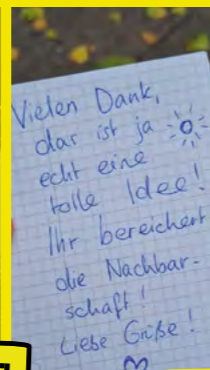 Vielen Dank,
dar ist ja
echt eine
tolle Idee!
Ihr bereichert
die Nachbar-
schaft!
Liebe Grüße!